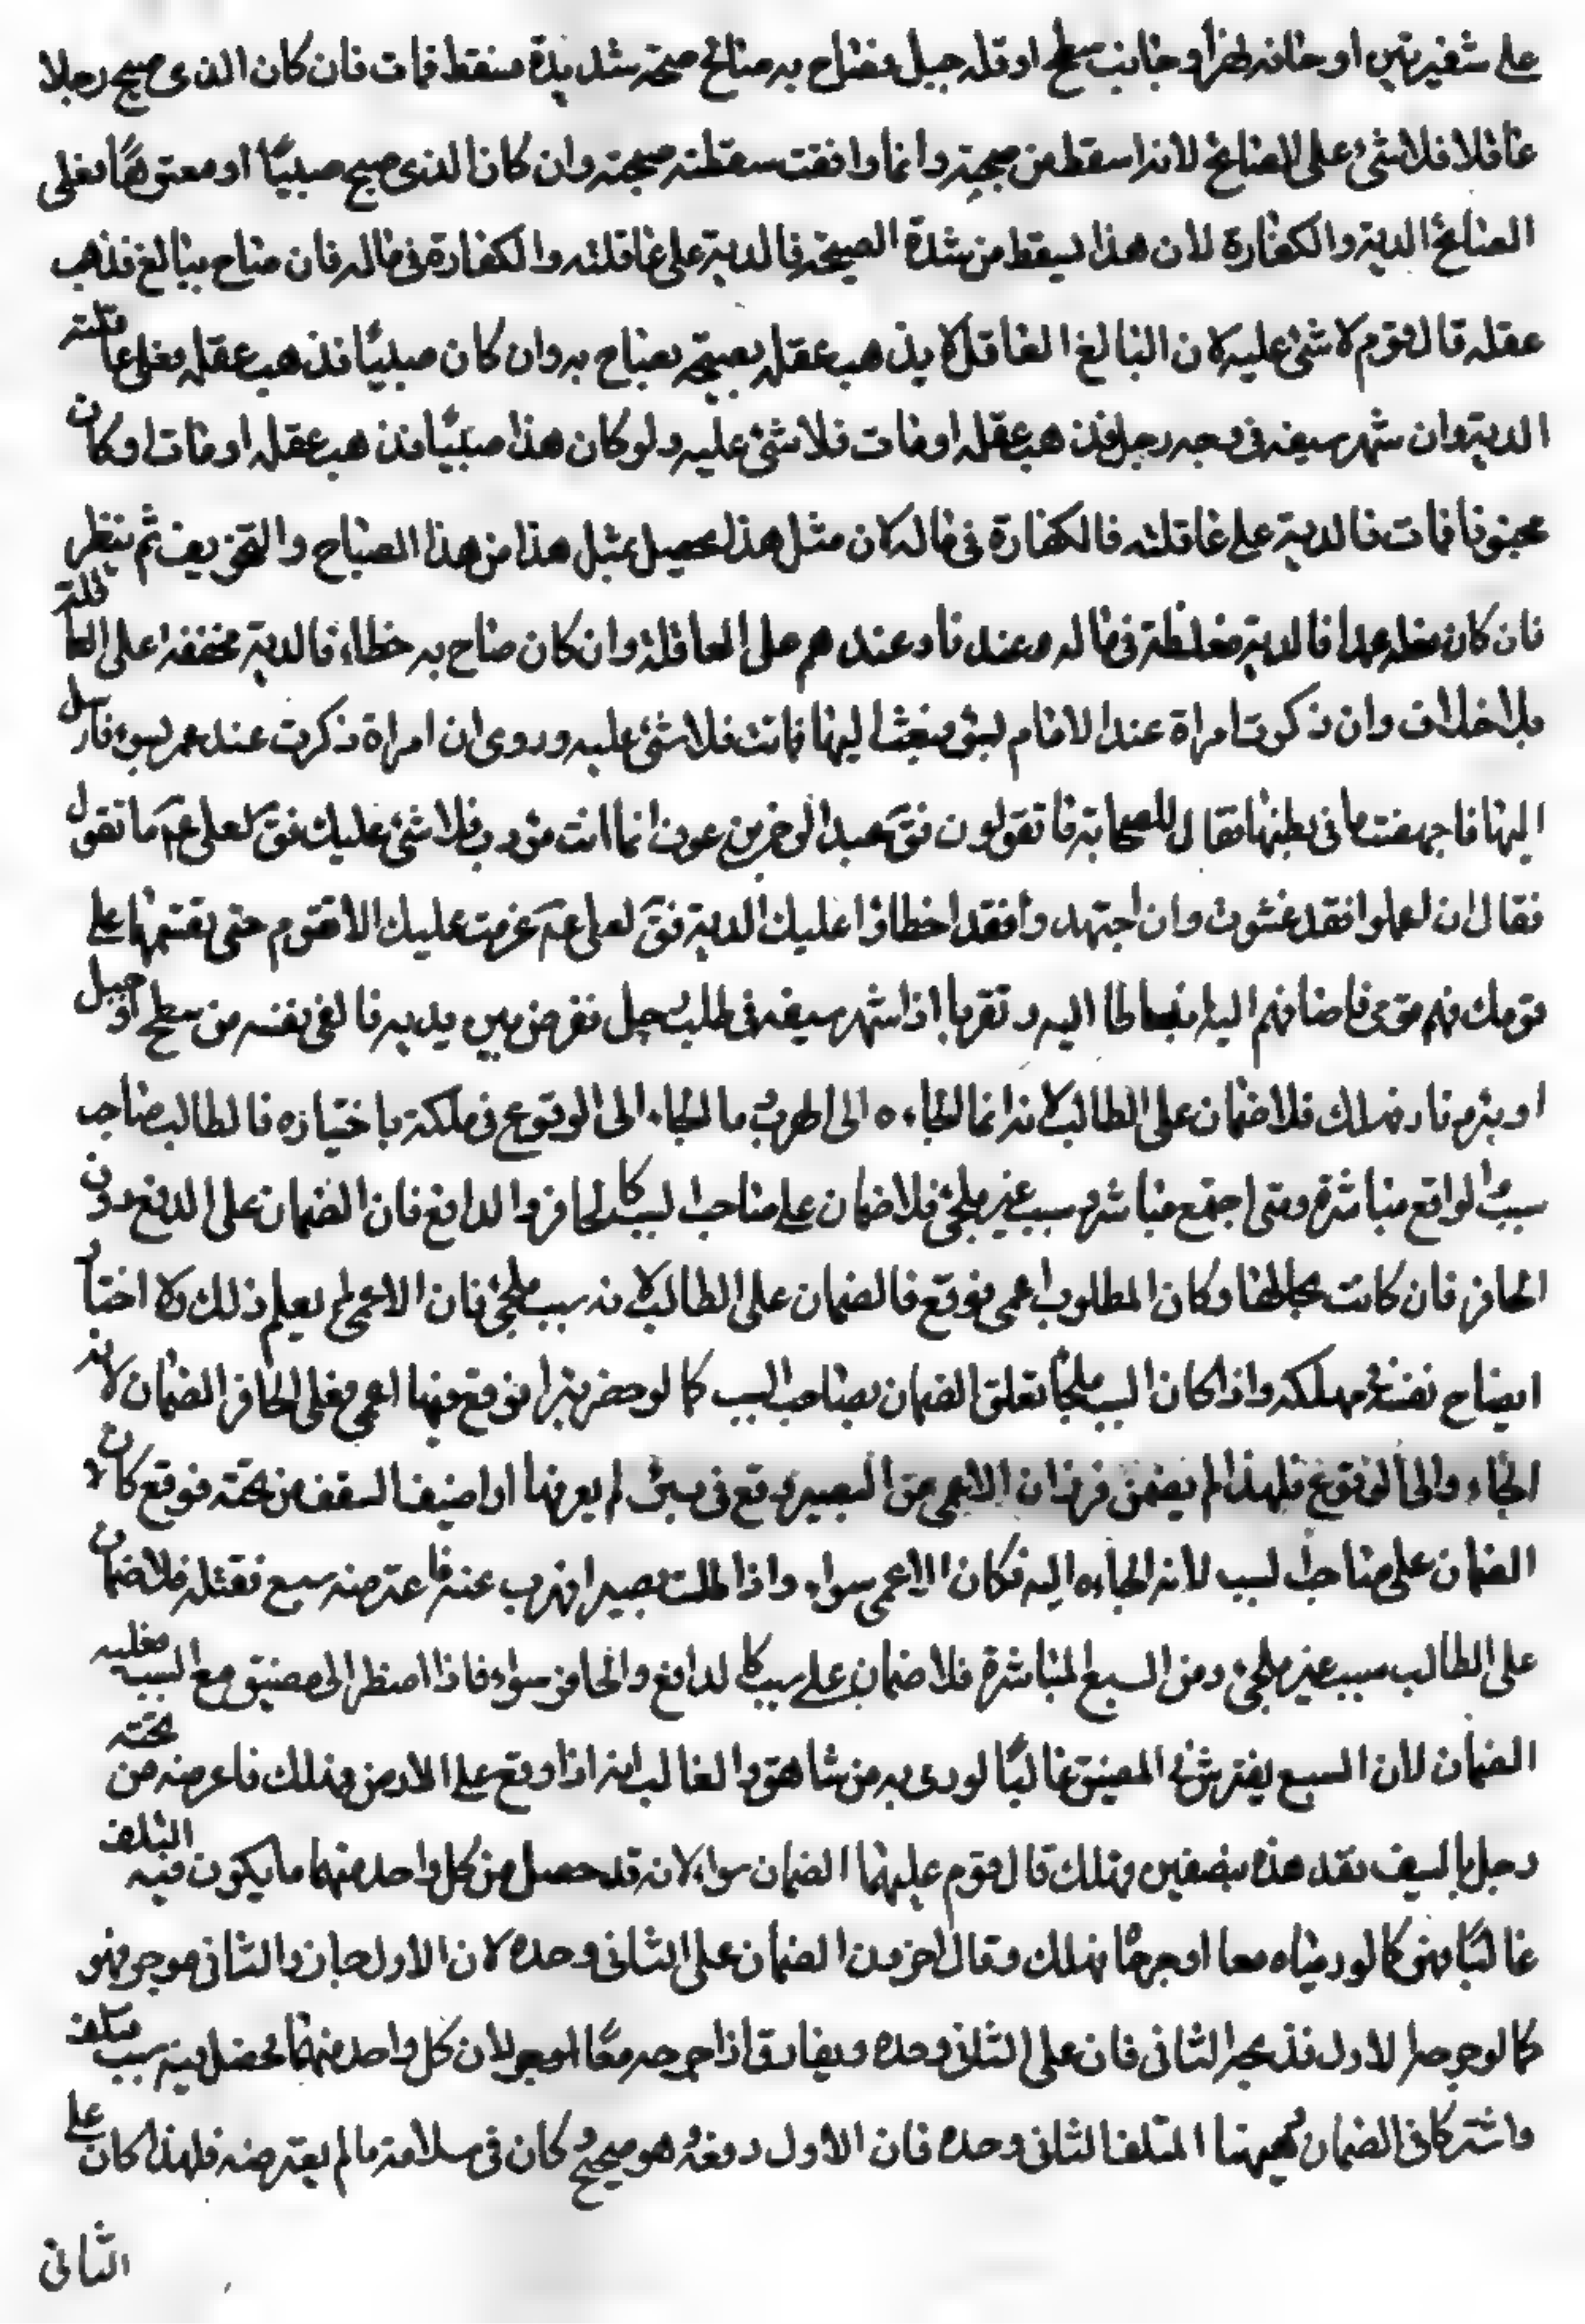 على شفير بئر او حافة نهر او جانب سطح او قلة جبل فصاح به صائح صيحة شديدة فسقط فمات فان كان الذي صيح رجلا
عاقلا فلا شئ على الصائح لانه ما سقط من صيحته وانما وافقت سقطته صيحته وان كان الذي صيح صبيًا او معتوهًا فعلى
الصائح الدية والكفارة لان هذا يسقط من شدة الصيحة فالدية على عاقلته والكفارة في ماله فان صاح ببالغ فذهب
عقله قال قوم لا شئ عليه لان البالغ العاقل لا يذهب عقله بصيحة يصاح به وان كان صبيًا فذهب عقله فعلى عاقلته
الدية وان شهر سيفه في وجه رجل فذهب عقله او مات فلا شئ عليه ولو كان هذا صبيًا فذهب عقله او مات او كان
مجنونا فمات فالدية على عاقلته فالكفارة في ماله لان مثل هذا يحصل بمثل هذا من هذا الصياح والتخويف ثم ينظر
فان كان فعله عمدا فالدية مغلظة في ماله عندنا وعندهم على العاقلة وان كان صاح به خطاء فالدية مخففة على العاقلة
بلا خلاف وان ذكرت امراة عند الامام بسوء فبعث اليها فماتت فلا شئ عليه وروى ان امراة ذكرت عند عمر بسوء فارسل
اليها فاجهضت ما في بطنها فقال للصحابة ما تقولون فقَ عبد الرحمن بن عوف انما انت مؤدب فلا شئ عليك فقَ لعلى عَم ما تقول
فقال ان علموا فقد غشوك وان اجتهدوا فقد اخطاؤا عليك الدية فقَ لعلى عَم عزمت عليك الا تقوم حتى تقسمها على
قومك فهم قومى فاضافهم اليه انبساطا اليه وتقربا اذا شهر سيفه في طلب رجل ففر من بين يديه فالقى نفسه من سطح او جبل
او بئر او نار فهلك فلا ضمان على الطالب لانه انما الجاءه الى الهرب ما الجاءه الى الوقوع في مهلكة باختياره فالطالب صاحب
سبب الواقع مباشرة ومتى اجتمع مباشرة وسبب غير ملجئ فلا ضمان على صاحب السبب كالحافر والدافع فان الضمان على الدافع دون
الحافر فان كانت بحالها وكان المطلوب اعمى فوقع فالضمان على الطالب لانه سبب ملجئ فان الاعمى لم يعلم ذلك ولا اختار
ايضاح نفسه في مهلكه واذا كان السبب ملجئا تعلق الضمان بصاحب السبب كما لو حفر بئرا فوقع فيها اعمى فعلى الحافر الضمان لانه
الجاء والى الوقوع فلهذا لم يضمن فرزان الاعمى من البصير وقع في بئر لم يعرفها او انخسف السقف من تحته فوقع كان
الضمان على صاحب السبب لانه الجاءه اليه فكان الاعمى سواء واذا طلب بصيرا فهرب عنه فاعترضه سبع فقتله فلا ضمان
على الطالب سبب غير ملجئ ومن السبع المباشرة فلا ضمان على سبب كالدافع والحافر سواء فاذا اضطر الى مضيق مع السبع فعليه
الضمان لان السبع يفترش في المضيق غالبًا لو رمى به من شاهق والغالب انه اذا وقع على الارض هلك فاعرضه من تحته
رجل بالسيف فقده نصفين فهلك قال قوم عليهما الضمان سواء لانه قد حصل من كل واحد منهما ما يكون فيه التلف
غالبًا فهو كما لو رمياه معا او جرحًا فهلك وقال اخرون الضمان على الثاني وحده لان الاول جان والثاني موجر فهو
كما لو جرحه الاول فذبحه الثاني فان على الثاني وحده ويفارق اذا جرحه معًا لان كل واحد منهما يحصل منه سبب متلف
واشتركا في الضمان فهيهنا المتلف الثاني وحده فان الاول دفعه وهو صحيح وكان في سلامة ما لم يعترضه فلهذا كان على
الثانى